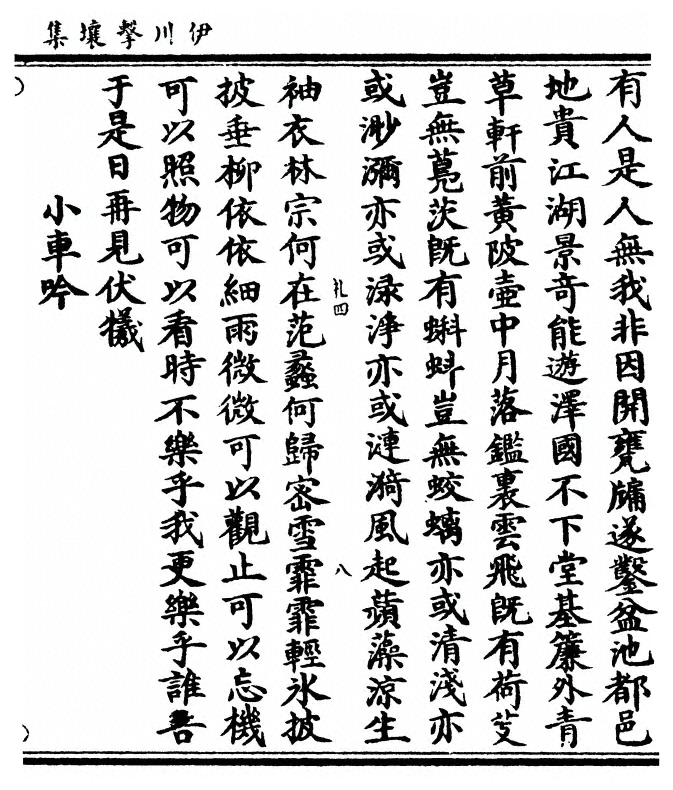 伊川擊壤集
有人是人無我非因開甕牖遂鑿盆池都邑
地貴江湖景竒能遊澤國不下堂基簾外青
草軒前黃陂壺中月落鑑裏雲飛旣有荷芰
豈無茨旣有蝌蚪豈無蛟螭亦或清淺亦
或渺濔亦或渌淨亦或漣漪風起蘋藻涼生
扎四
八
袖衣林宗何在范蠡何歸宻雪霏霏輕氷披
披垂柳依依細雨微微可以觀止可以忘機
可以照物可以看時不樂乎我更樂乎誰吾
于是日再見伏犧
小車吟